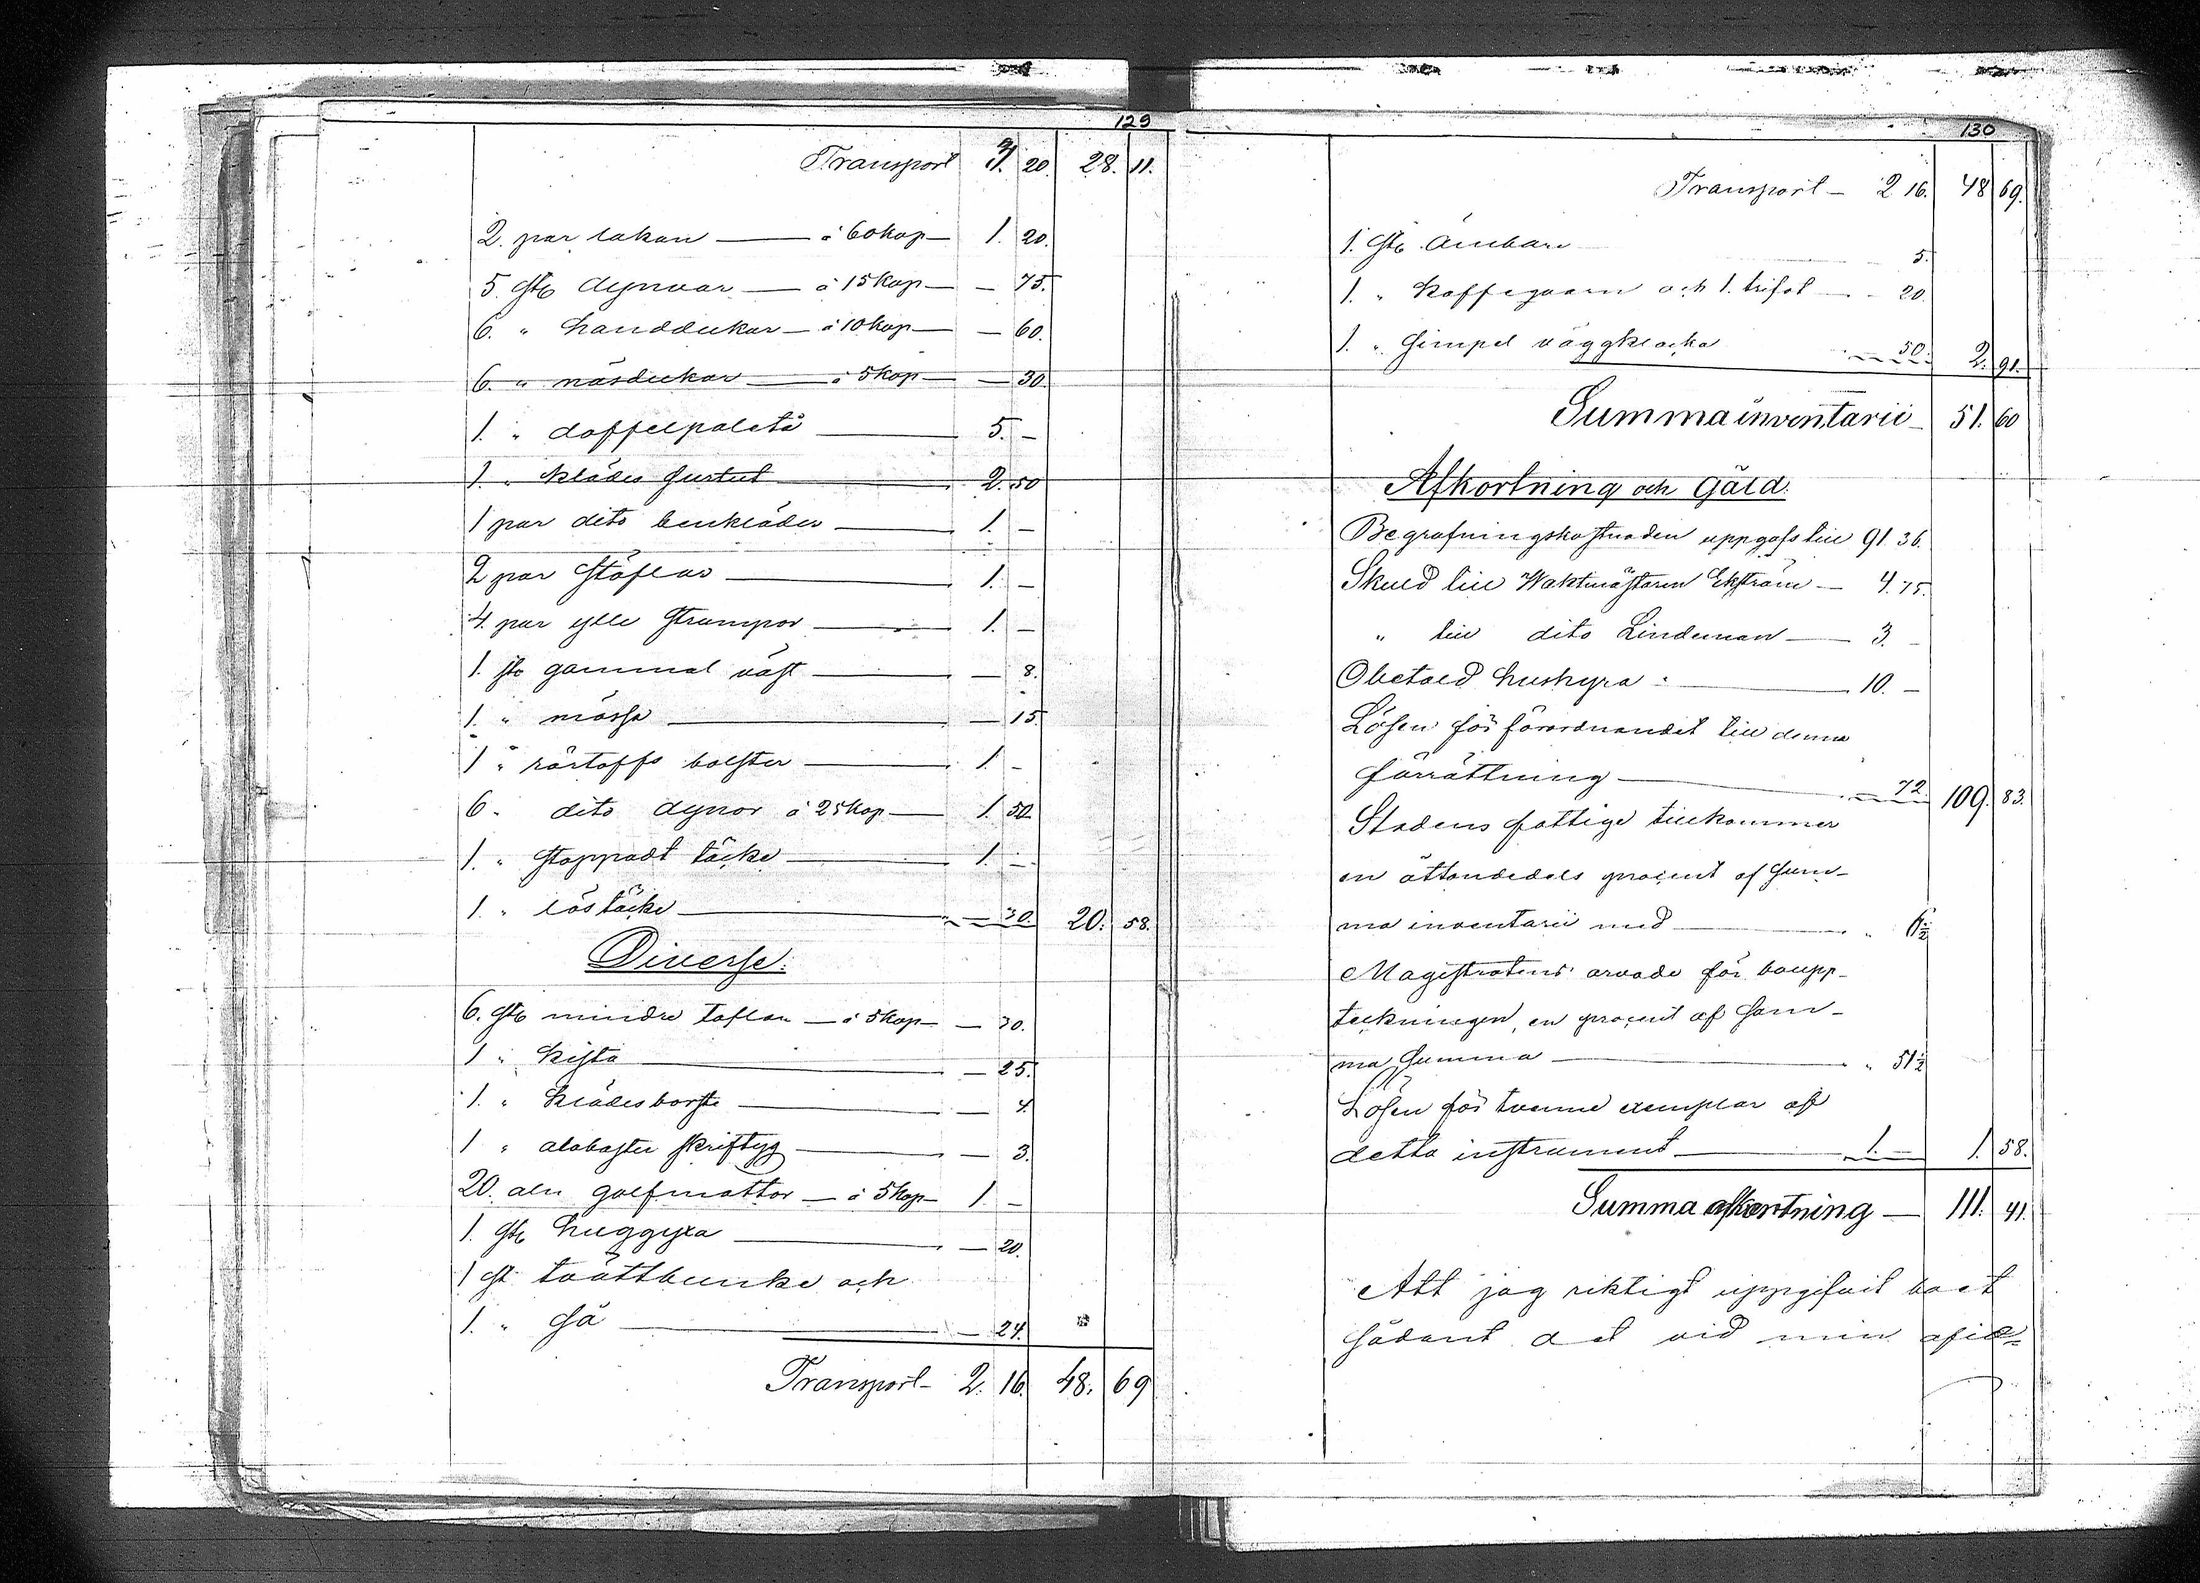 129
Transport 3. 20. 28. 11.
2. par lakan — á 60 kop — 1. 20.
5. st. dynvar — á 15 kop — — 75.
6. " handdukar — á 10 kop — — 60.
6. " näsdukar — á 5 kop — — 30
1. " doffelpaletå — 5. —
1. " klädes surtut — 2. 50
1 par dito benkläder — 1. —
2 par stöflar — 1. —
4. par ylle strumpor — 1. —
1. st. gammal väst — — 8.
1. " mössa — — 15
1 " rårtoffs bolster — 1. —
6. dito dynor á 25 kop — 1. 50
1. " stoppadt täcke — 1. —
1. " löstäcke — — 30. 20. 58.
Diverse:
6. st. mindre taflor — á 5 kop — — 30.
1 " kista — — 25.
1. " klädesborste — — 4.
1 " alabaster skriftyg — — 3.
20. aln golfmattor — á 5 kop — 1 —
1. st. huggyxa — — 20.
1 st. tvättbunke och
1. " så — — 24.
Transport — 2. 16. 48. 69
130
Transport — 2 16. 48 69.
1. st. ämbare 5.
1. " kaffeqvarn och 1. trifot — — 20
1. " simpel väggklocka 50. 2. 91.
Summa inventarii — 51. 60
Afkortning och Gäld.
Begrafningskostnaden uppgafs till 91. 36.
Skuld till Waktmästaren Ekström — 4. 75.
" till dito Lindeman — 3. —
Obetald hushyra — 10. —
Lösen för förordnandet till denna
förrättning — 72. 109. 83.
Stadens fattige tillkommer
en åttondedels procent af sum-
ma inventarii med — " 6½
Magistratens arvode för boupp-
teckningen, en procent af sam-
ma summa — " 51½
Lösen för tvenne exemplar af
detta instrument — 1. — 1. 58.
Summa afkortning — 111. 41.
Att jag riktigt uppgifvit boet
sådant det vid min aflid-